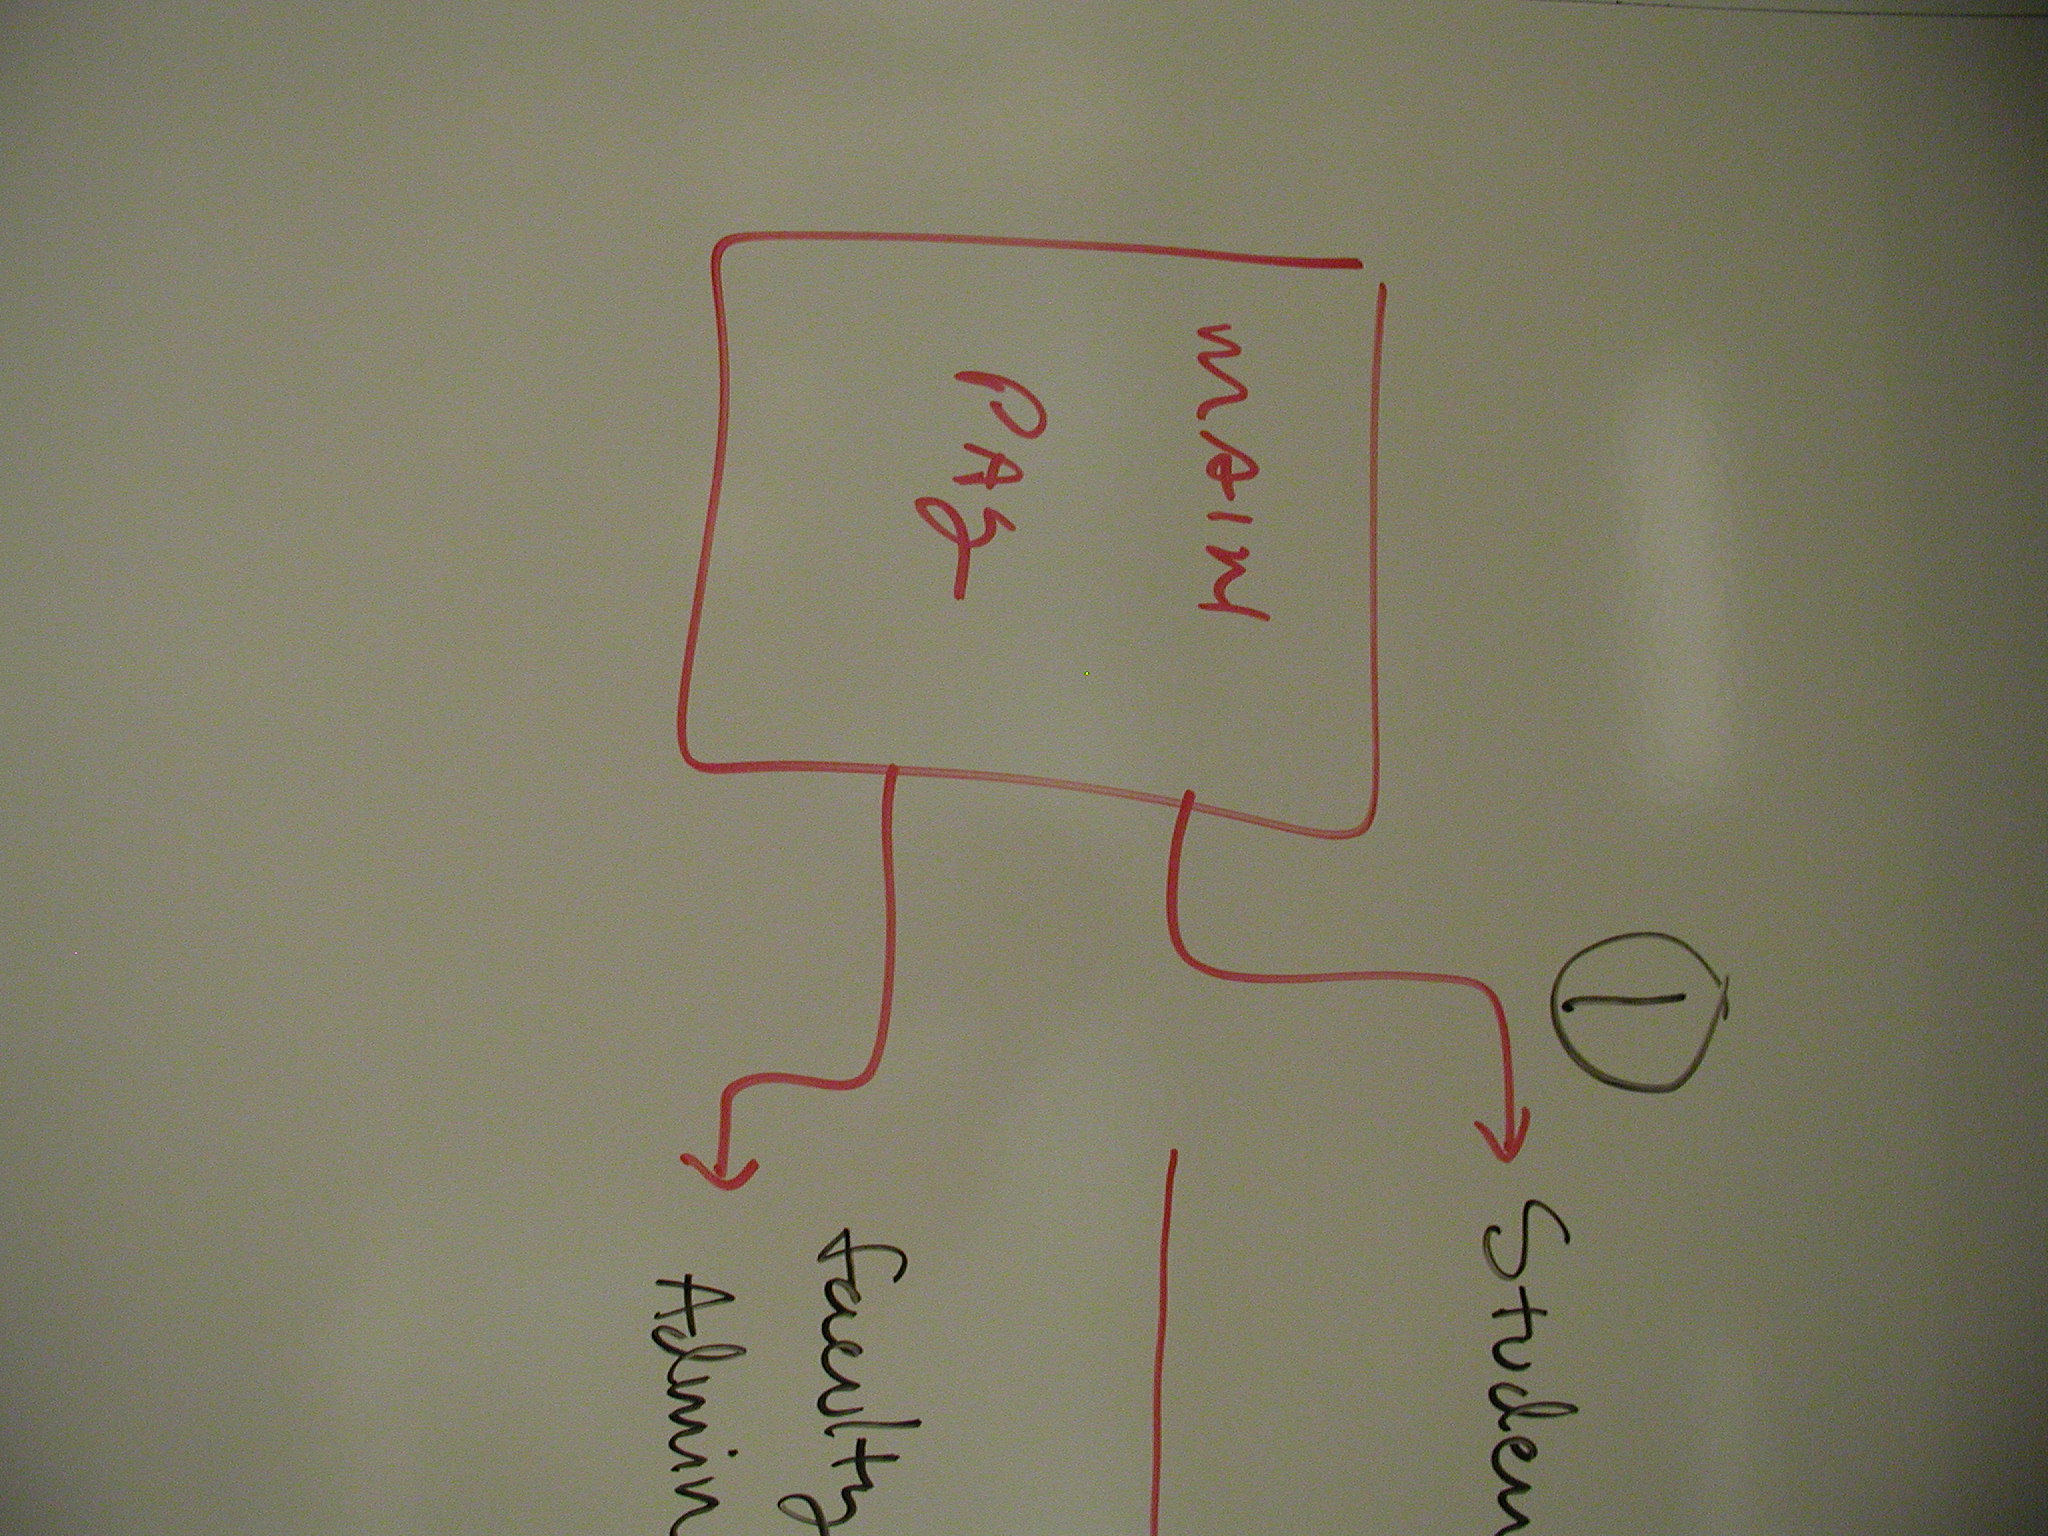 ①
MAIN
PAg
Studen
faculty
Admin